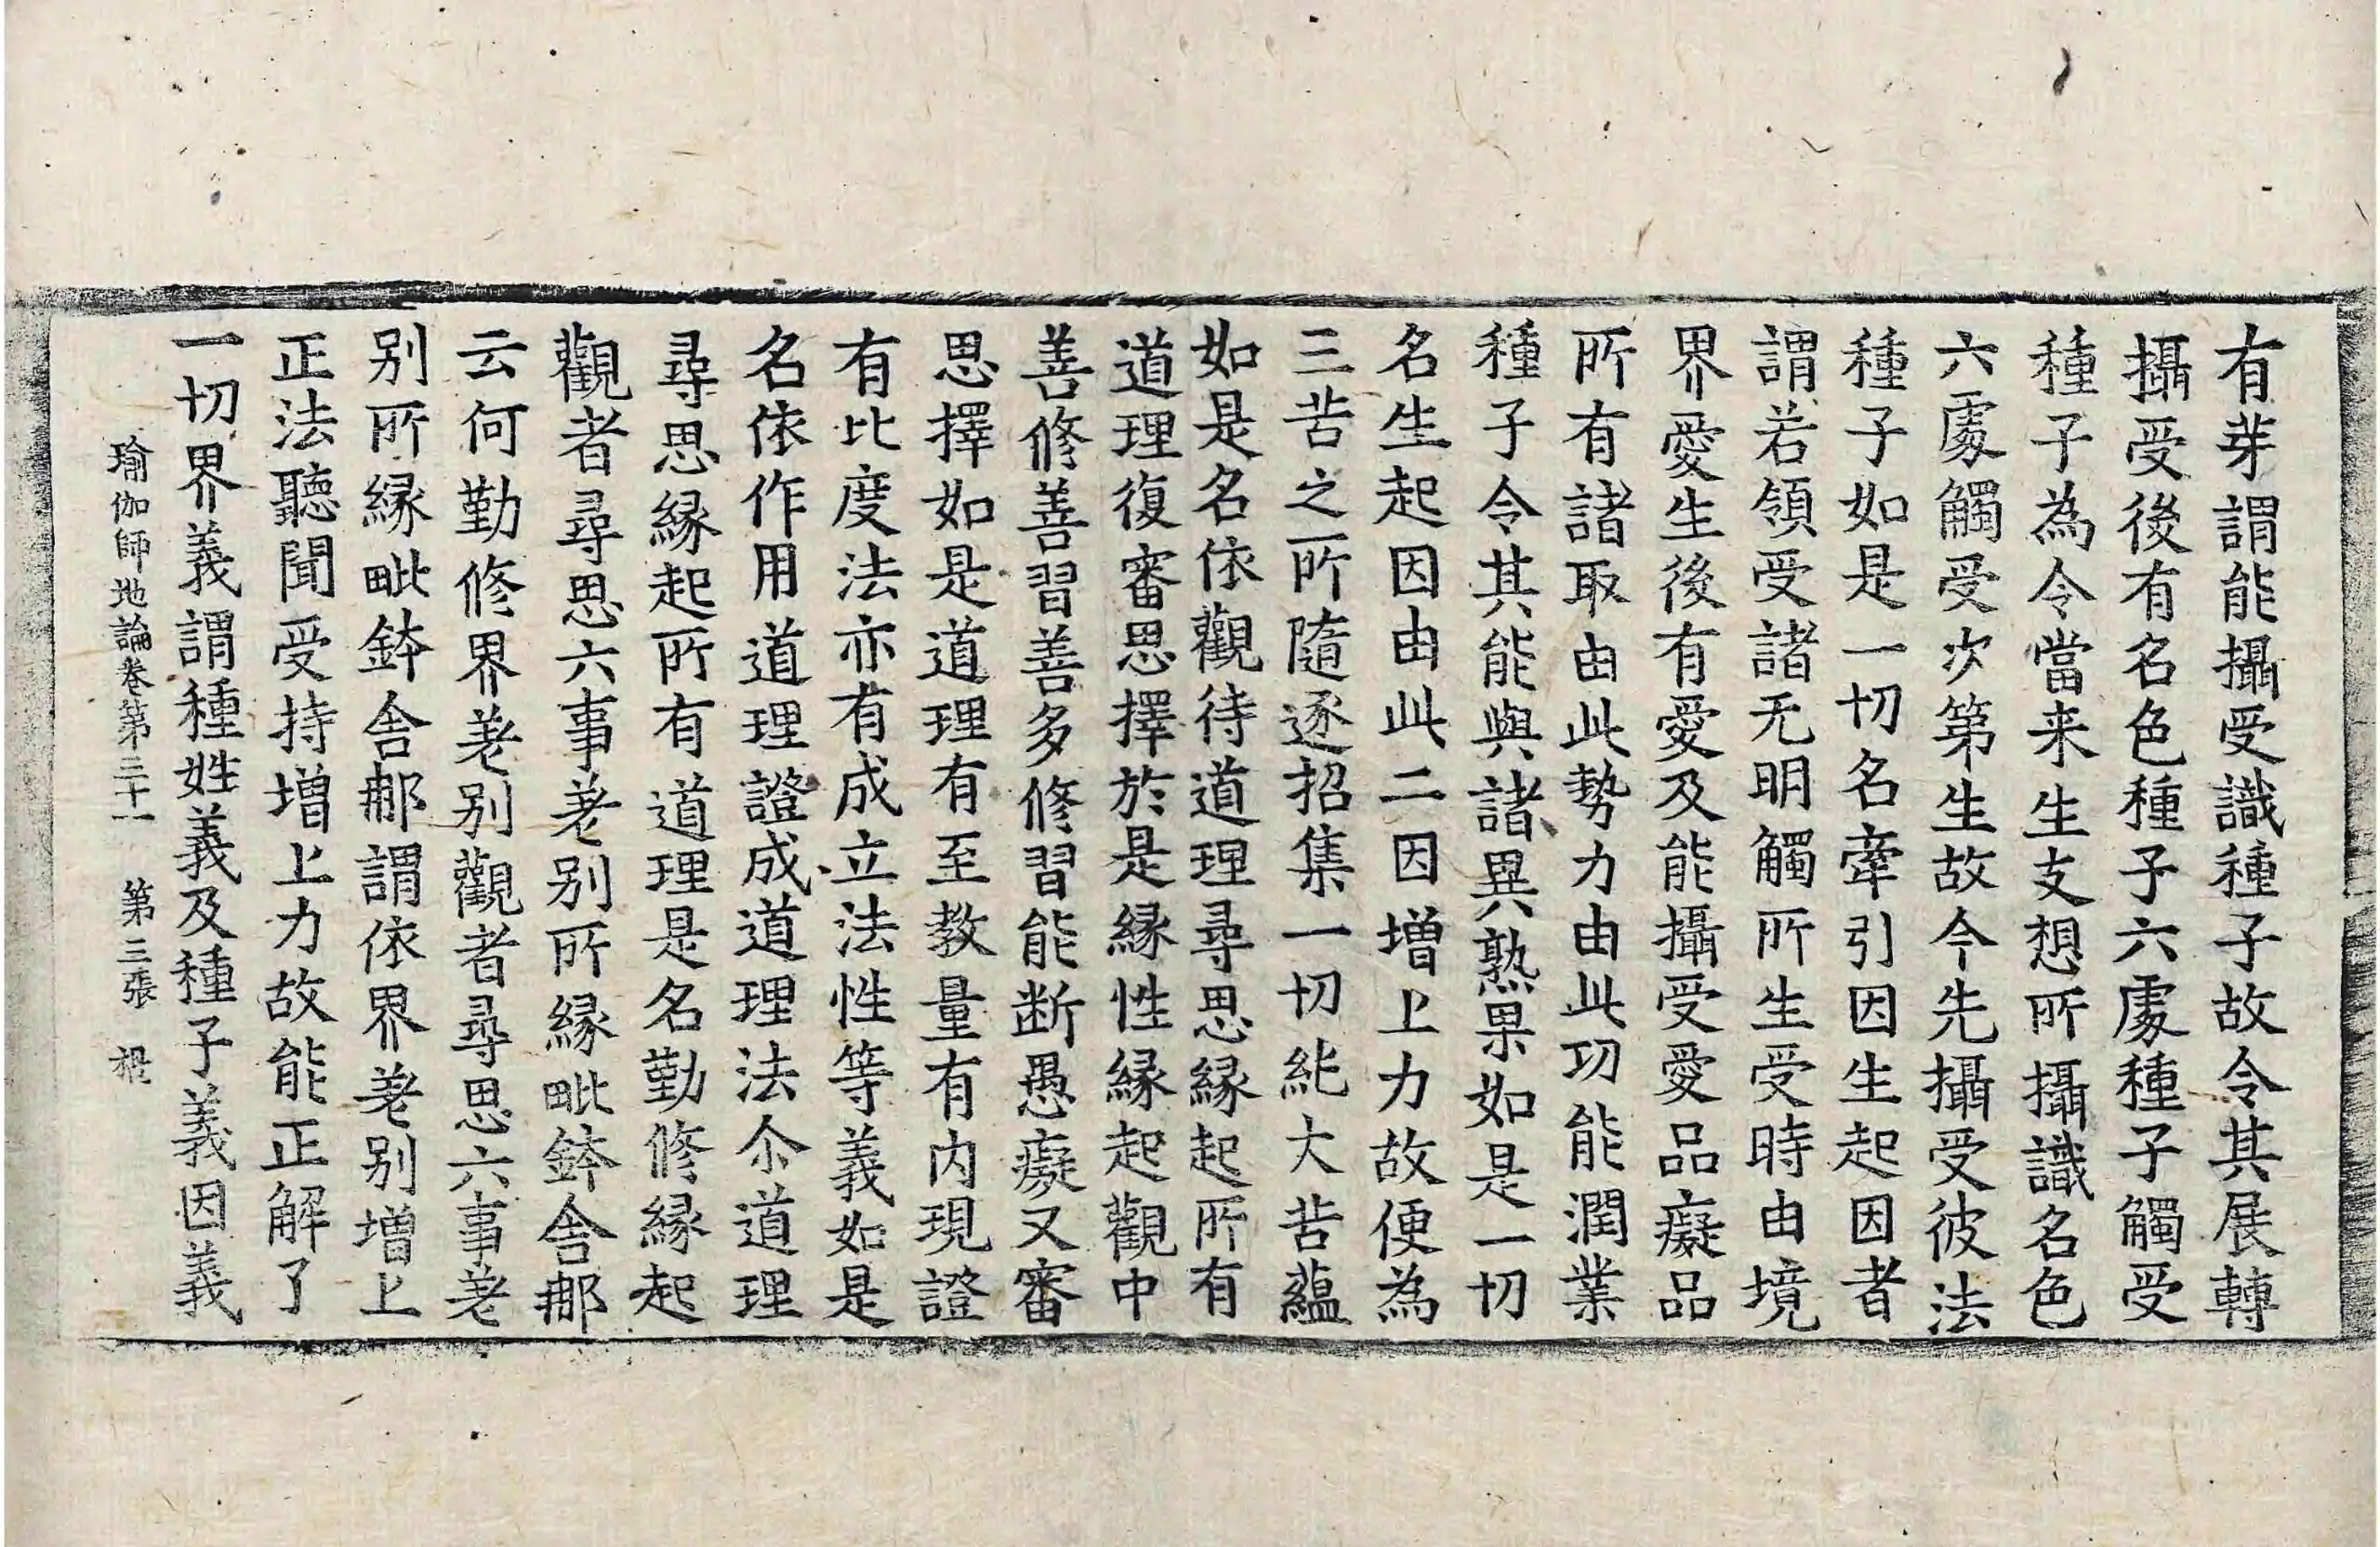 有芽謂能攝受識種子故令其展轉
攝受後有名色種子六處種子觸受
種子為令當来生支想所攝識名色
六處觸受次第生故今先攝受彼法
種子如是一切名牽引因生起因者
謂若領受諸无明觸所生受時由境
界愛生後有愛及能攝受愛品癡品
所有諸取由此勢力由此功能潤業
種子令其能與諸異熟果如是一切
名生起因由此二因增上力故便為
三苦之所隨逐招集一切純大苦蘊
如是名依觀待道理尋思緣起所有
道理復審思擇於是緣性緣起觀中
善修善習善多修習能断愚癡又審
思擇如是道理有至教量有内現證
有比度法亦有成立法性等義如是
名依作用道理證成道理法尒道理
尋思緣起所有道理是名勤修緣起
觀者尋思六事差別所緣毗鉢舍那
云何勤修界差別觀者尋思六事差
別所緣毗鉢舍那謂依界差別增上
正法聽聞受持增上力故能正解了
一切界義謂種姓義及種子義因義
瑜伽師地論卷第三十一　第三張